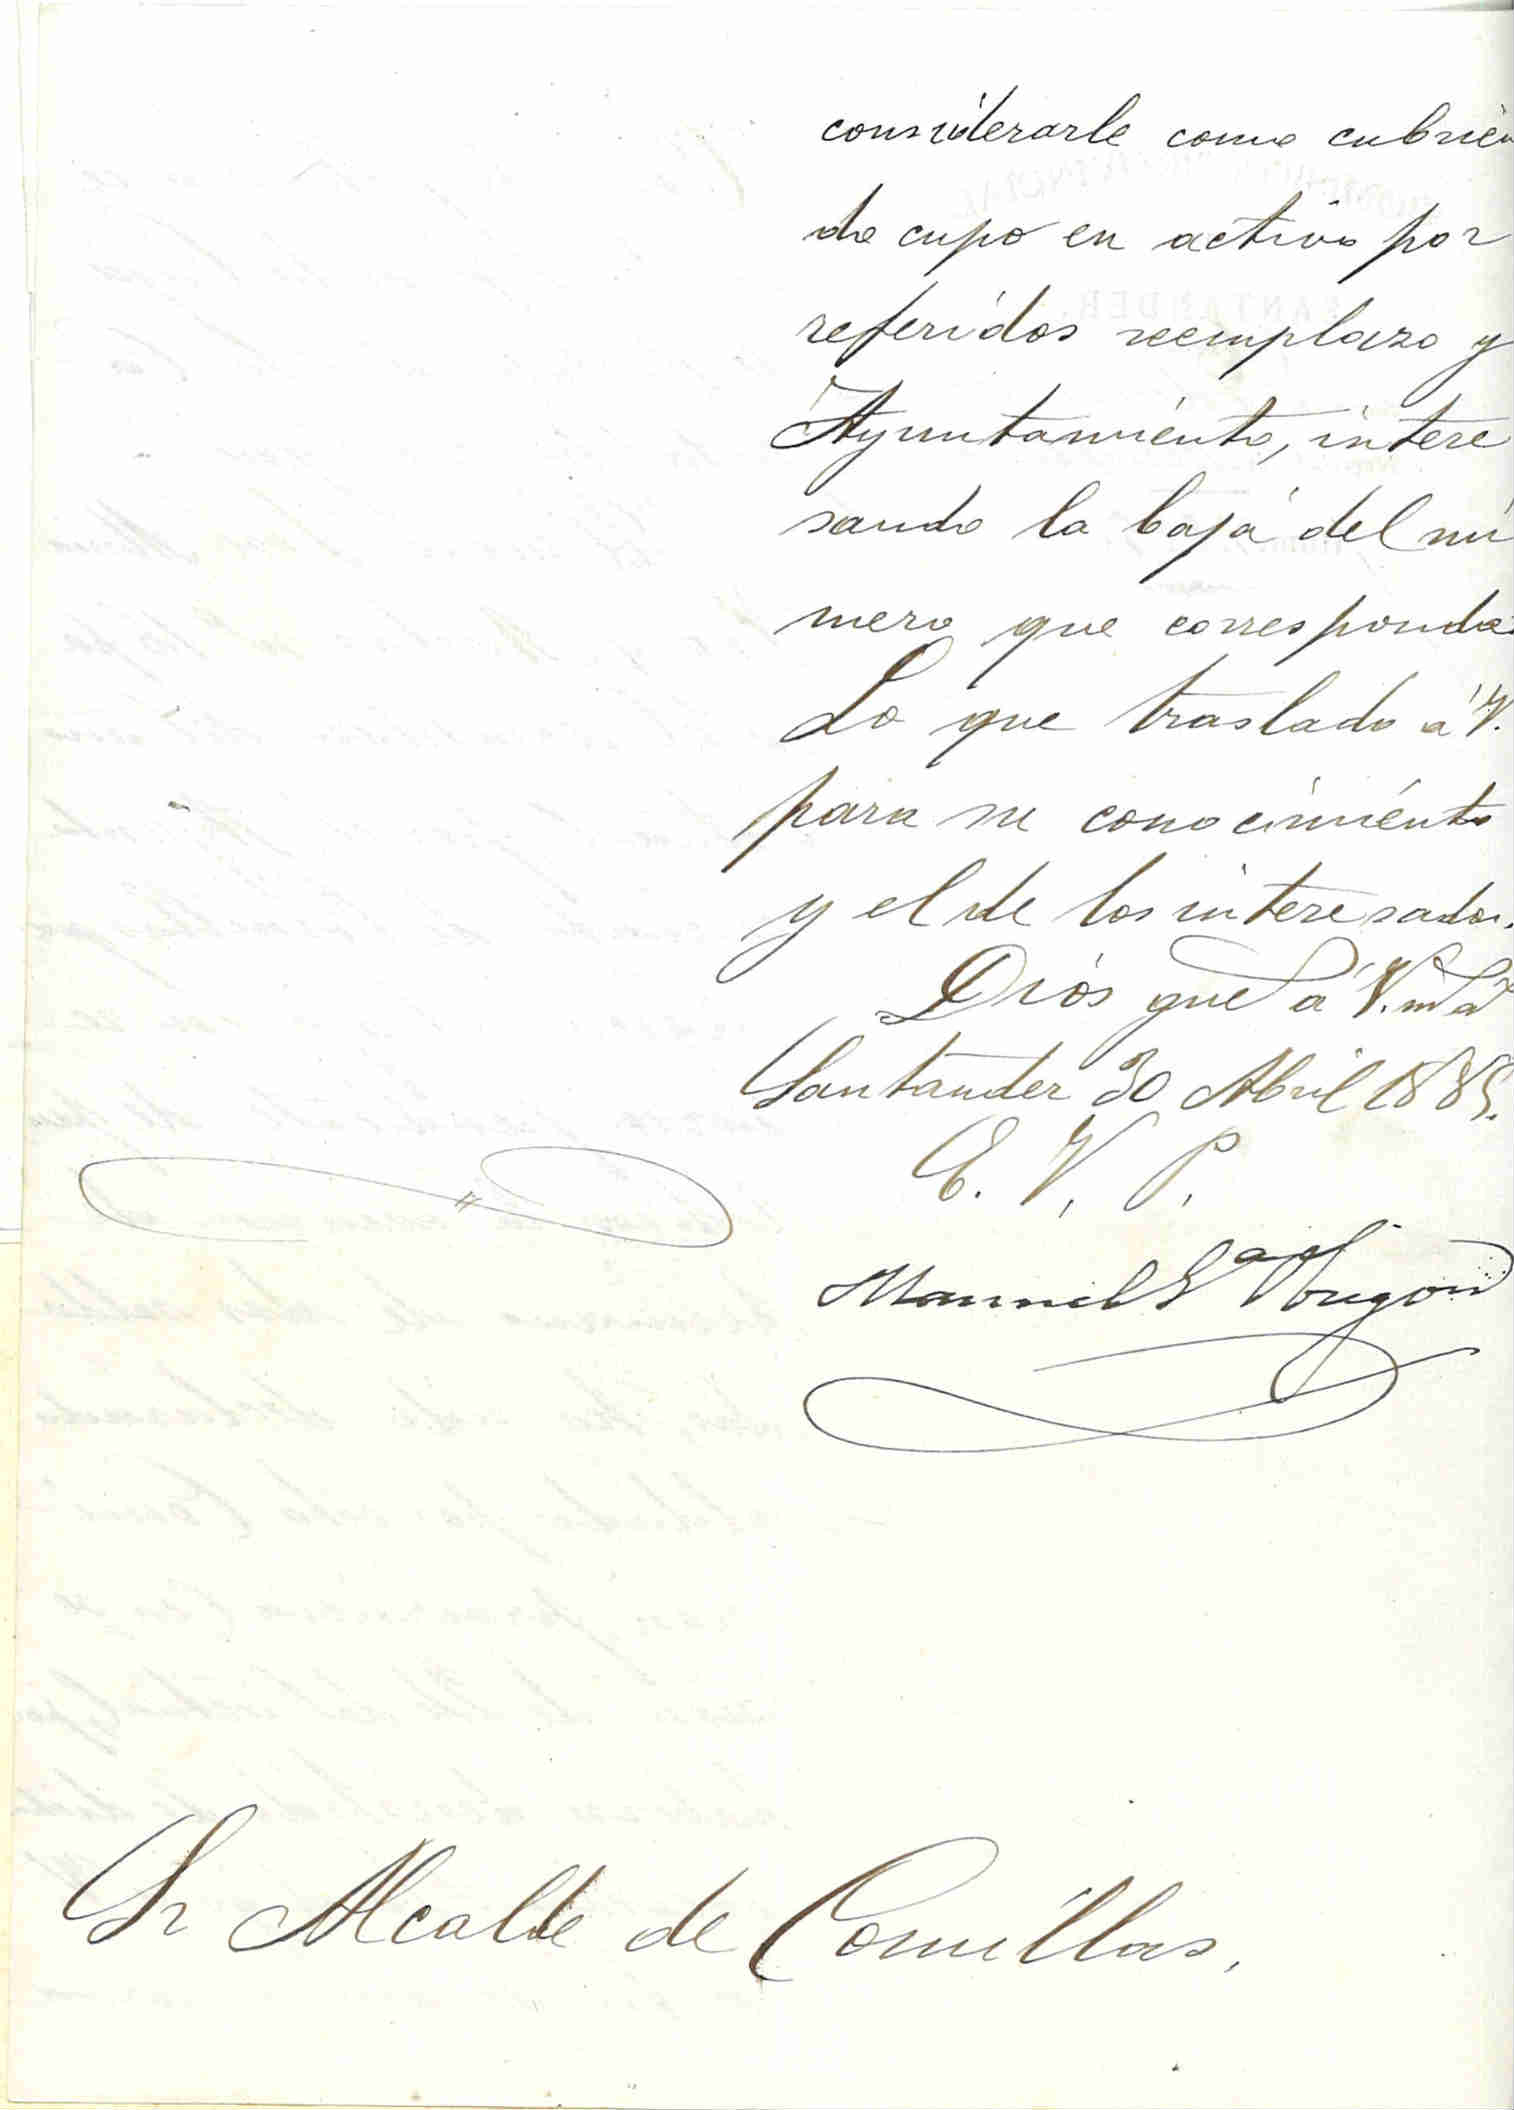 considerarle como cubrien
do cupo en activo por
referidos reemplazo y
Ayuntamiento, intere
sando la baja del nú
mero que corresponda.
Lo que traslado á V.
para su conocimiento
y el de los interesados.
Dios gue á V. m a
Santander 30 Abril 1885.
E. V. P.
Manuel
Sr Alcalde de Comillas.